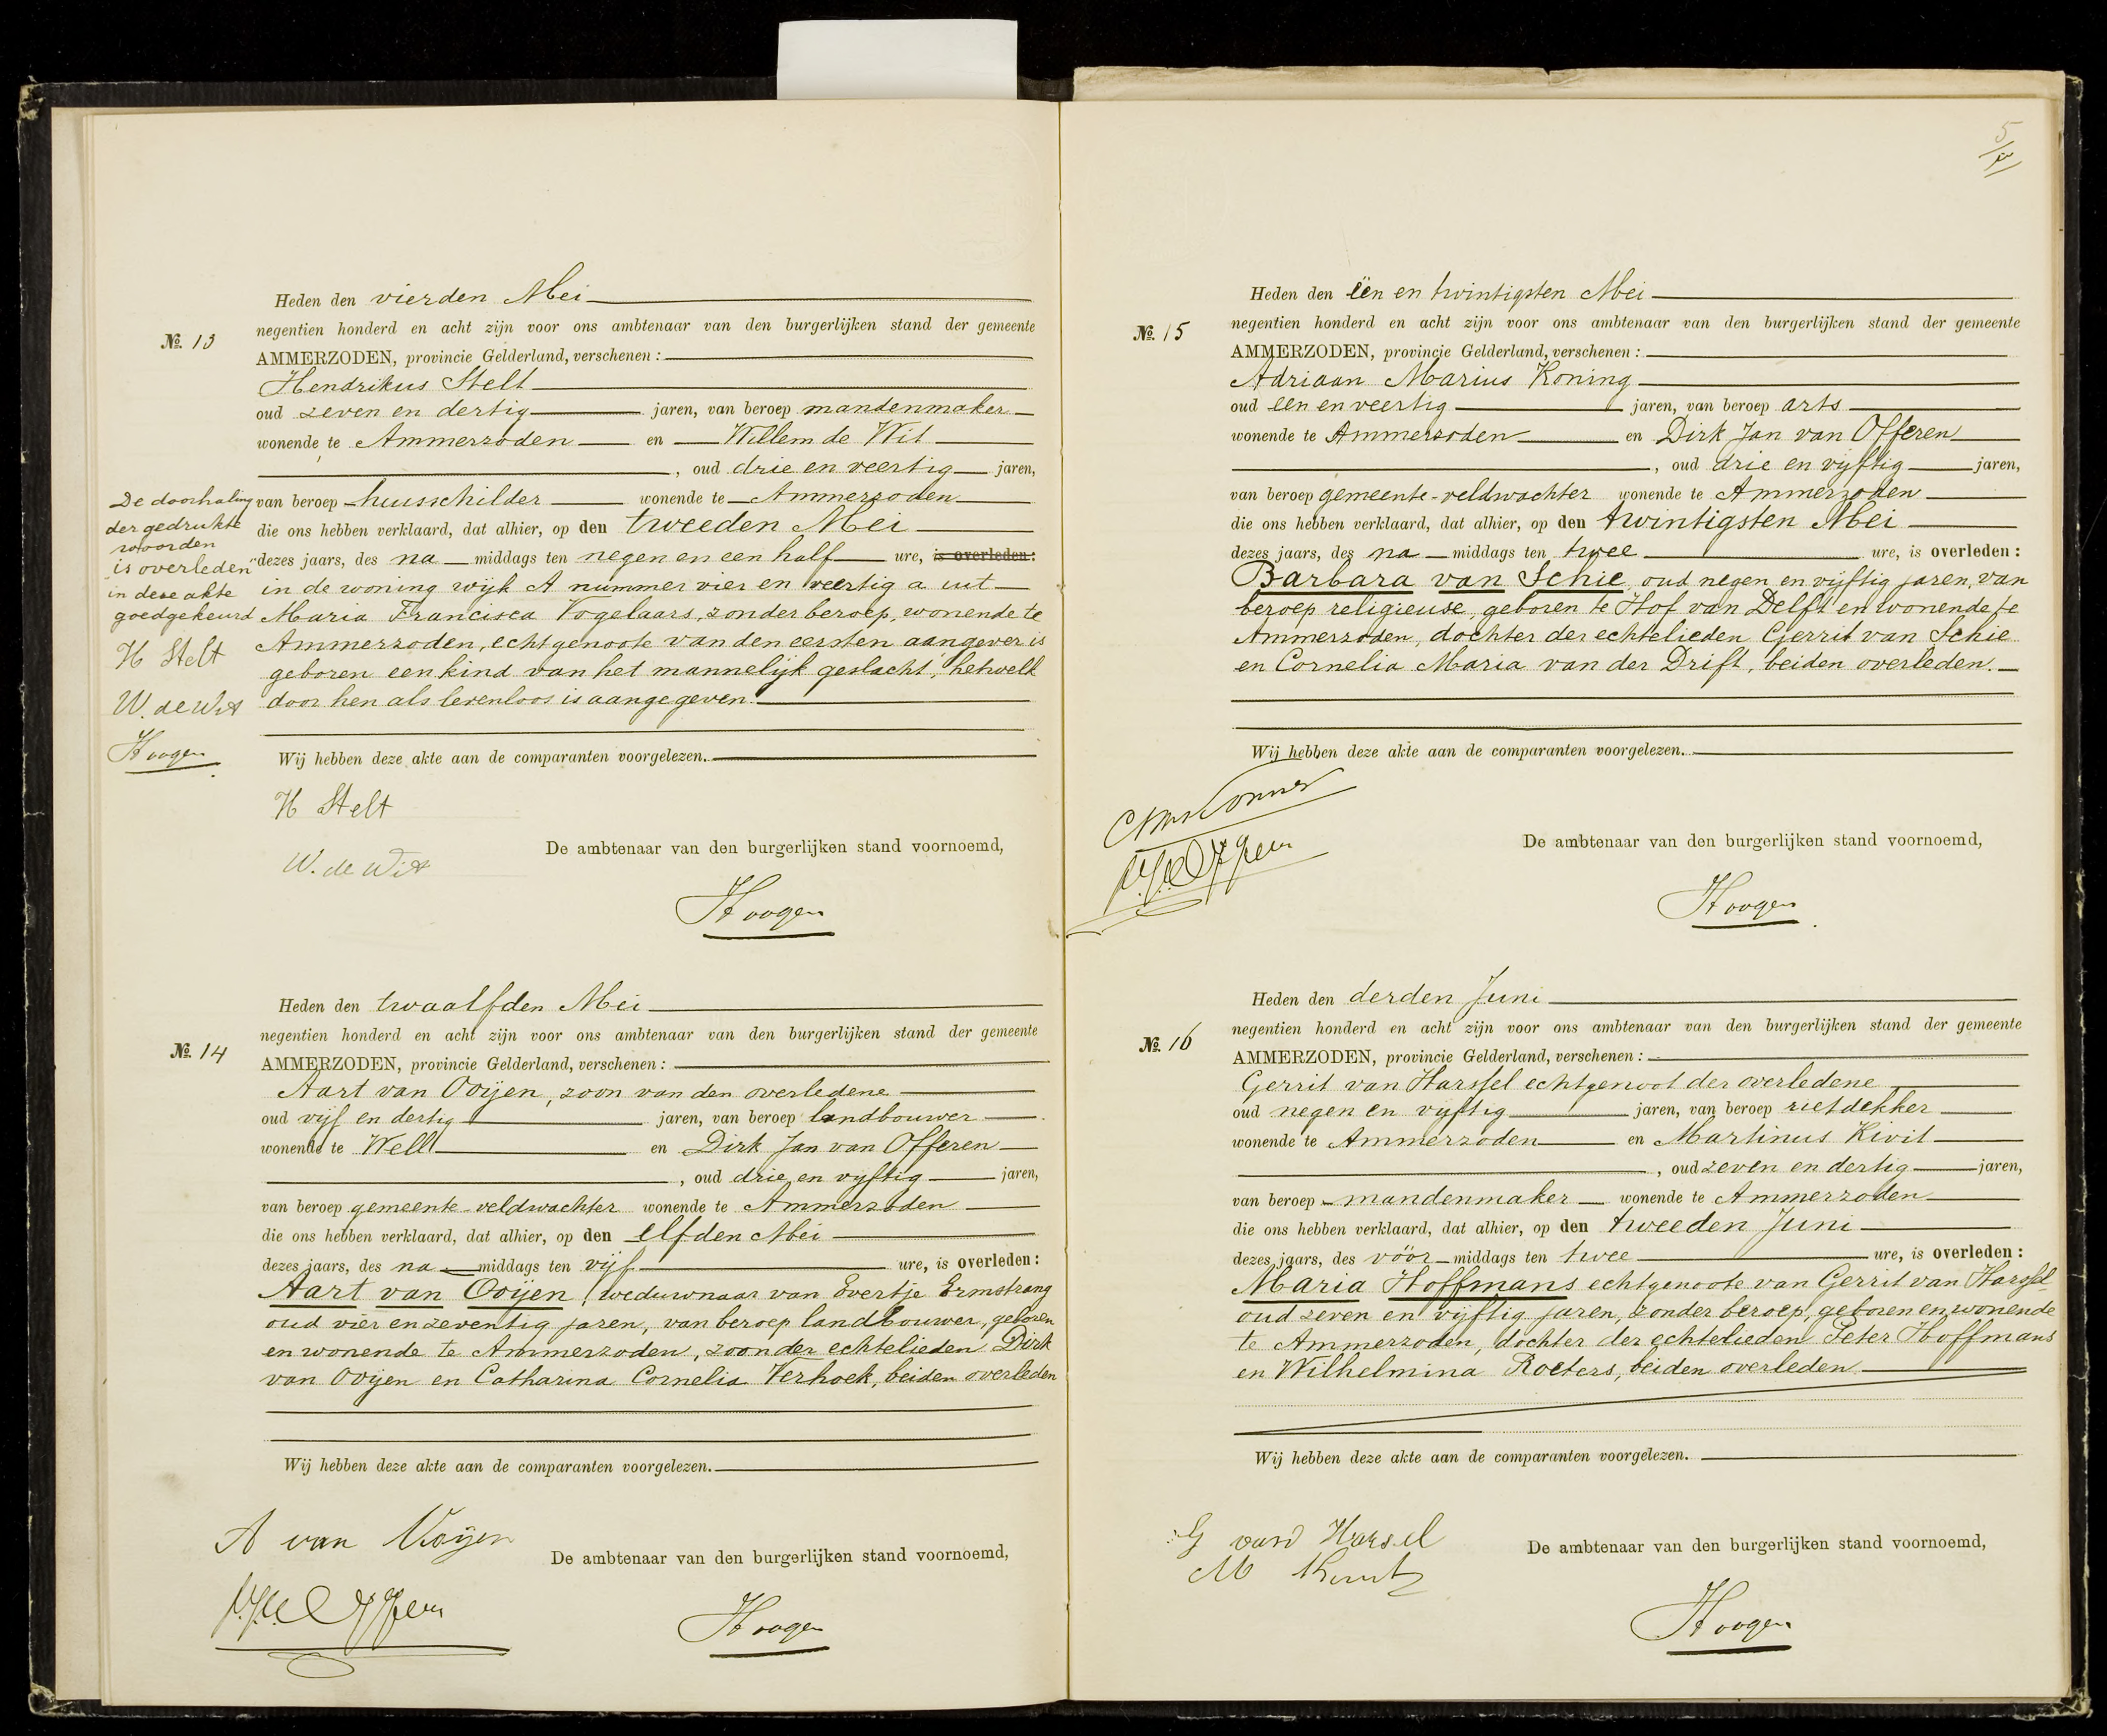 Heden den vierden Mei
No. 13
negentien honderd en acht zijn voor ons ambtenaar van den burgerlijken stand der gemeente
AMMERZODEN, provincie Gelderland, verschenen:
Hendrikus Stelt
oud zeven en dertig jaren, van beroep mandenmaker
wonende te Ammerzoden en Willem de Wit
, oud drie en veertig jaren,
van beroep huisschilder wonende te Ammerzoden
die ons hebben verklaard, dat alhier, op den tweeden Mei
dezes jaars, des na middags ten negen en een half ure, is overleden:
in de woning wijk A nummer vier en veertig a uit
Maria Francisca Vogelaars, zonder beroep, wonende te
Ammerzoden, echtgenoote van den eersten aangever is
geboren een kind van het mannelijk geslacht, hetwelk
door hen als levenloos is aangegeven.
Wij hebben deze akte aan de comparanten voorgelezen.
De doorhaling
der gedrukte
woorden
"is overleden"
in deze akte
goedgekeurd
H Stelt
W. de Wit
Hoogen
H Stelt
De ambtenaar van den burgerlijken stand voornoemd,
W. de Wit
Hoogen
Heden den twaalfden Mei
negentien honderd en acht zijn voor ons ambtenaar van den burgerlijken stand der gemeente
No. 14
AMMERZODEN, provincie Gelderland, verschenen:
Aart van Ooijen, zoon van den overledene
oud vijf en dertig jaren, van beroep landbouwer
wonende te Well en Dirk Jan van Offeren
, oud drie en vijftig jaren,
van beroep gemeente-veldwachter wonende te Ammerzoden
die ons hebben verklaard, dat alhier, op den elfden Mei
dezes jaars, des na middags ten vijf ure, is overleden:
Aart van Ooijen, weduwnaar van Evertje Ermstrang
oud vier en zeventig jaren, van beroep landbouwer, geboren
en wonende te Ammerzoden, zoon der echtelieden Dirk
van Ooijen en Catharina Cornelia Verhoek, beiden overleden
Wij hebben deze akte aan de comparanten voorgelezen.
A van Ooijen
De ambtenaar van den burgerlijken stand voornoemd,
Hoogen
5
Heden den één en twintigsten Mei
No. 15
negentien honderd en acht zijn voor ons ambtenaar van den burgerlijken stand der gemeente
AMMERZODEN, provincie Gelderland, verschenen:
Adriaan Marius Koning
oud een en veertig jaren, van beroep arts
wonende te Ammerzoden en Dirk Jan van Offeren
, oud drie en vijftig jaren,
van beroep gemeente-veldwachter wonende te Ammerzoden
die ons hebben verklaard, dat alhier, op den twintigsten Mei
dezes jaars, des na middags ten twee ure, is overleden:
Barbara van Schie, oud negen en vijftig jaren, van
beroep religieuse, geboren te Hof van Delft en wonende te
Ammerzoden, dochter der echtelieden Gerrit van Schie
en Cornelia Maria van der Drift, beiden overleden.
Wij hebben deze akte aan de comparanten voorgelezen.
De ambtenaar van den burgerlijken stand voornoemd,
Hoogen
Heden den derden Juni
negentien honderd en acht zijn voor ons ambtenaar van den burgerlijken stand der gemeente
No. 16
AMMERZODEN, provincie Gelderland, verschenen:
Gerrit van Harssel echtgenoot der overledene
oud negen en vijftig jaren, van beroep rietdekker
wonende te Ammerzoden en Martinus Kivit
, oud zeven en dertig jaren,
van beroep mandenmaker wonende te Ammerzoden
die ons hebben verklaard, dat alhier, op den tweeden Juni
dezes jaars, des vóór middags ten twee ure, is overleden:
Maria Hoffmans echtgenoote van Gerrit van Harssel
oud zeven en vijftig jaren, zonder beroep, geboren en wonende
te Ammerzoden, dochter der echtelieden Peter Hoffmans
en Wilhelmina Roeters, beiden overleden
Wij hebben deze akte aan de comparanten voorgelezen.
G van Harsel
De ambtenaar van den burgerlijken stand voornoemd,
M
Hoogen